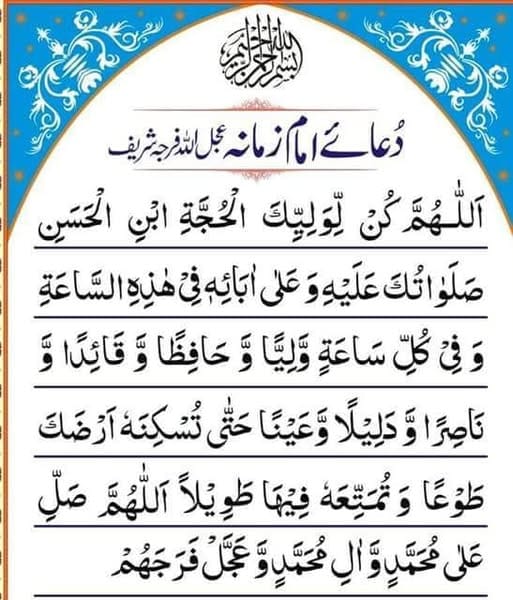 بسم الله الرحمن الرحيم
دُعائے امام زمانہ عجل اللہ فرجہ شریف
اَللّٰهُمَّ كُنْ لِّوَلِيِّكَ الْحُجَّةِ ابْنِ الْحَسَنِ
صَلَوٰاتُكَ عَلَيْهِ وَ عَلٰى اٰبَائِهٖ فِيْ هٰذِهِ السَّاعَةِ
وَ فِيْ كُلِّ سَاعَةٍ وَّلِيًّا وَّ حَافِظًا وَّ قَائِدًا وَّ
نَاصِرًا وَّ دَلِيْلًا وَّ عَيْنًا حَتّٰى تُسْكِنَهٗ اَرْضَكَ
طَوْعًا وَ تُمَتِّعَهٗ فِيْهَا طَوِيْلاً اَللّٰهُمَّ صَلِّ
عَلٰى مُحَمَّدٍ وَّ اٰلِ مُحَمَّدٍ وَّ عَجِّلْ فَرَجَهُمْ